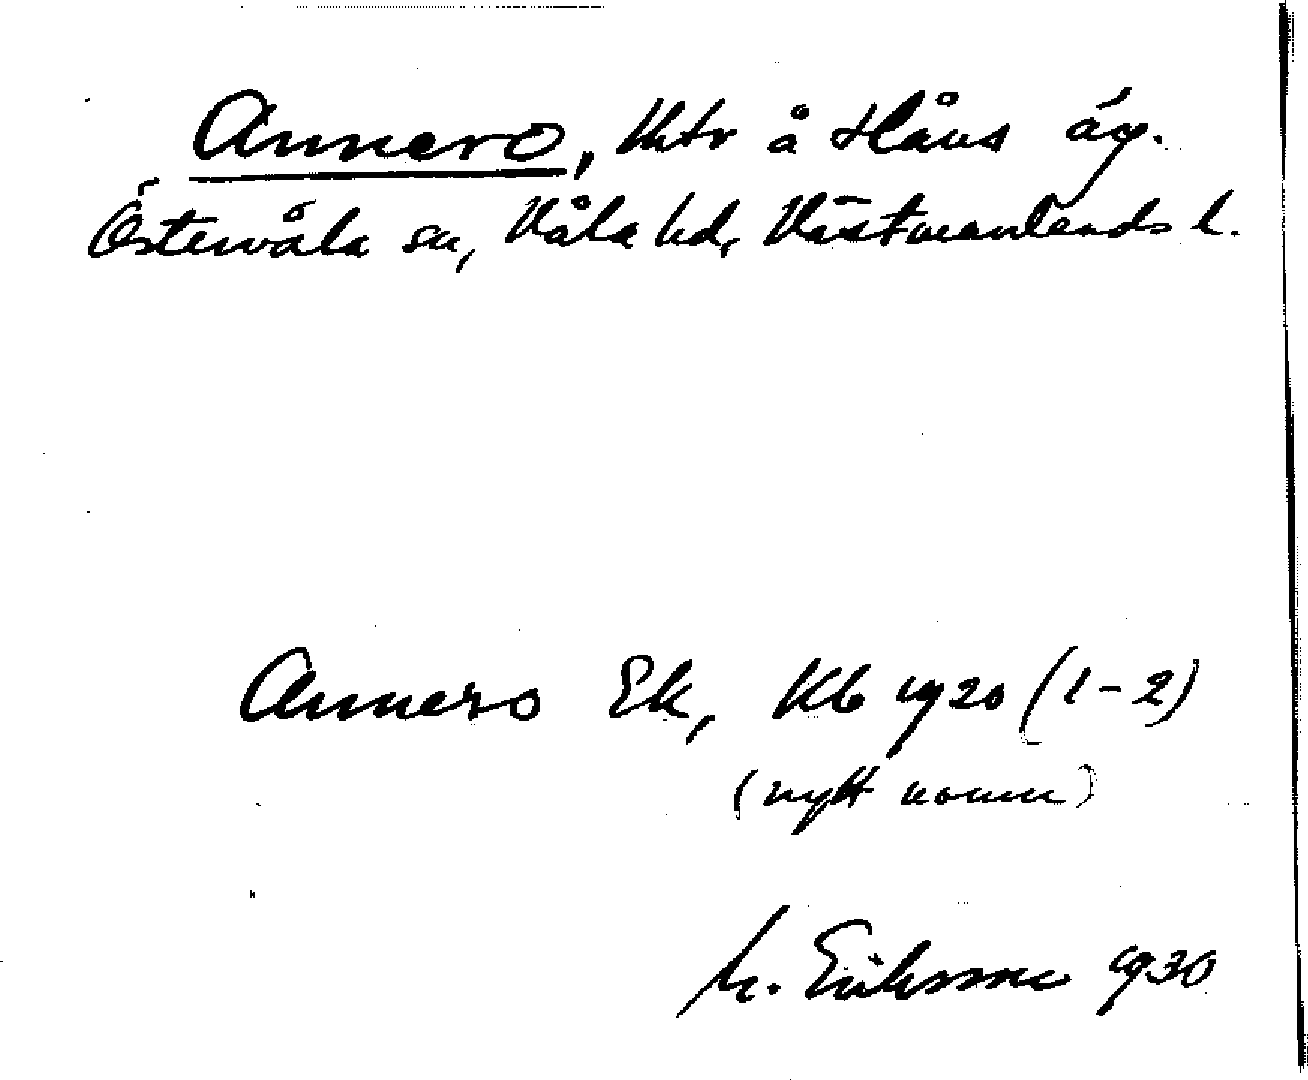 Annero, lhtr å Håns äg.
Östervåla sn, Våla hd, Västmanlands l.
Annero Ek, Kb 1920 (1-2)
(nytt namn)
M. Eriksson 1930